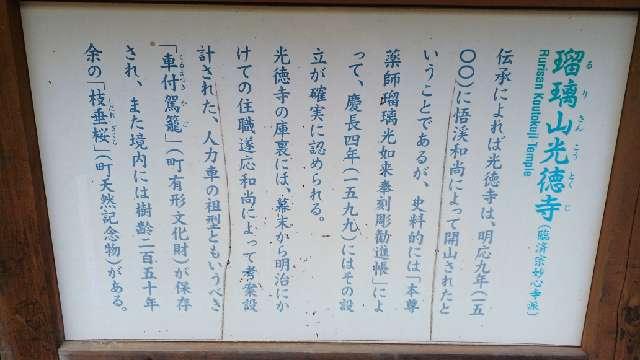 瑠璃山光徳寺(臨済宗妙心寺派)
るりさんこうとくじ
Rurisan Koutokuji Temple
伝承によれば光徳寺は、明応九年(一五
〇〇)に悟渓和尚によって開山されたと
いうことであるが、史料的には「本尊
薬師瑠璃光如来奉刻彫勧進帳」によ
って、慶長四年(一五九九)にはその設
立が確実に認められる。
光徳寺の庫裏には、幕末から明治にか
けての住職遂応和尚によって考案設
計された、人力車の祖型ともいうべき
「車付駕籠」(町有形文化財)が保存
され、また境内には樹齢二百五十年
余の「枝垂桜」(町天然記念物)がある。